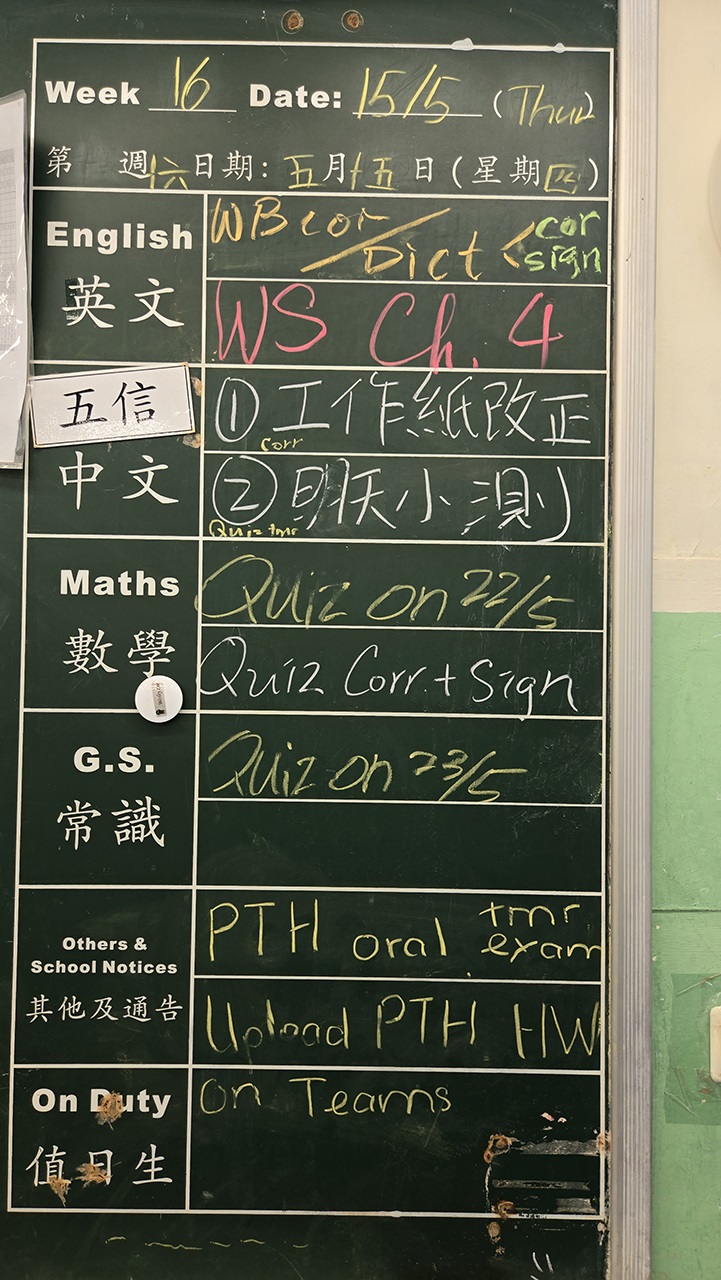 Week 16 Date: 15/5 (Thur)
第 週十六日期: 五月十五日 (星期四)
English
英文
WB cor / Dict < cor sign
WS Ch. 4
五信
中文
① 工作紙改正
corr
② 明天小測
Quiz tmr
Maths
數學
Quiz on 22/5
Quiz Corr + Sign
G.S.
常識
Quiz on 23/5
Others &
School Notices
其他及通告
PTH oral tmr exam
Upload PTH HW
On Duty
值日生
on Teams